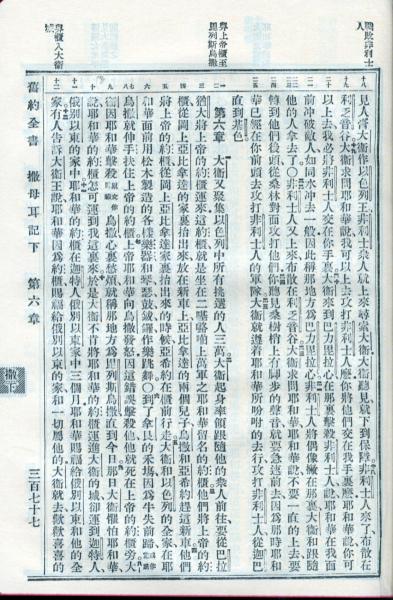 戰敗非利士人
舁上帝櫃至毘列斯烏撒
舁櫃入大衛城
見人膏大衛作以色列王非利士眾人就上來尋索大衛大衛聽見就下到保障非利士人來了布散在
利乏音谷大衛求問耶和華說我可以上去攻打非利士人麼你將他們交在我手裏麼耶和華說你可
以上去我必將非利士人交在你手裏大衛來到巴力毘拉心在那裏擊殺非利士人大衛說耶和華在我面
前冲破敵人如同水冲去一般因此稱那地方爲巴力毘拉心非利士人將偶像撇在那裏大衛和跟隨
他的人拿去了○非利士人又上來布散在利乏音谷大衛求問耶和華耶和華說不要一直的上去要
轉到他們後頭從桑林對面攻打他們你聽見桑樹梢上有脚步的聲音就要急速前去因爲那時耶和
華已經在你前頭去攻打非利士人的軍隊大衛就遵着耶和華所吩咐的去行攻打非利士人從迦巴
直到基色
第六章 大衛又聚集以色列中所有挑選的人三萬大衛起身率領跟隨他的眾人前往要從巴拉
猶大將上帝的約櫃運來這約櫃就是坐在二𠼻𠺝啪上萬軍之耶和華留名的約櫃他們將上帝的約
櫃從岡上亞比拿達的家裏抬出來放在新車上亞比拿達的兩個兒子烏撒和亞希約趕這新車他們
將上帝的約櫃從岡上亞比拿達家裏抬出來的時候亞希約在櫃前行走大衛和以色列的全家在耶
和華面前用松木製造的各樣樂器和琴瑟鼓鈸鑼作樂跳舞○到了拿艮的禾場因爲牛失前蹄
烏撒就伸手扶住上帝的約櫃上帝耶和華向烏撒發怒因這錯誤擊殺他他就死在上帝的約櫃旁大
衛因耶和華擊殺烏撒心裏愁煩就稱那地方爲毘列斯烏撒直到今日那日大衛懼怕耶和華
說耶和華的約櫃怎可運到我這裏來於是大衛不肯將耶和華的約櫃運進大衛的城卻運到迦特人
俄別以東的家中耶和華的約櫃在迦特人俄別以東家中三個月耶和華賜福給俄別以東和他的全
家有人告訴大衛王說耶和華因爲約櫃賜福給俄別以東的家和一切屬他的大衛就去歡歡喜喜的
舊約全書 撒母耳記下 第六章
撒下
三百七十七